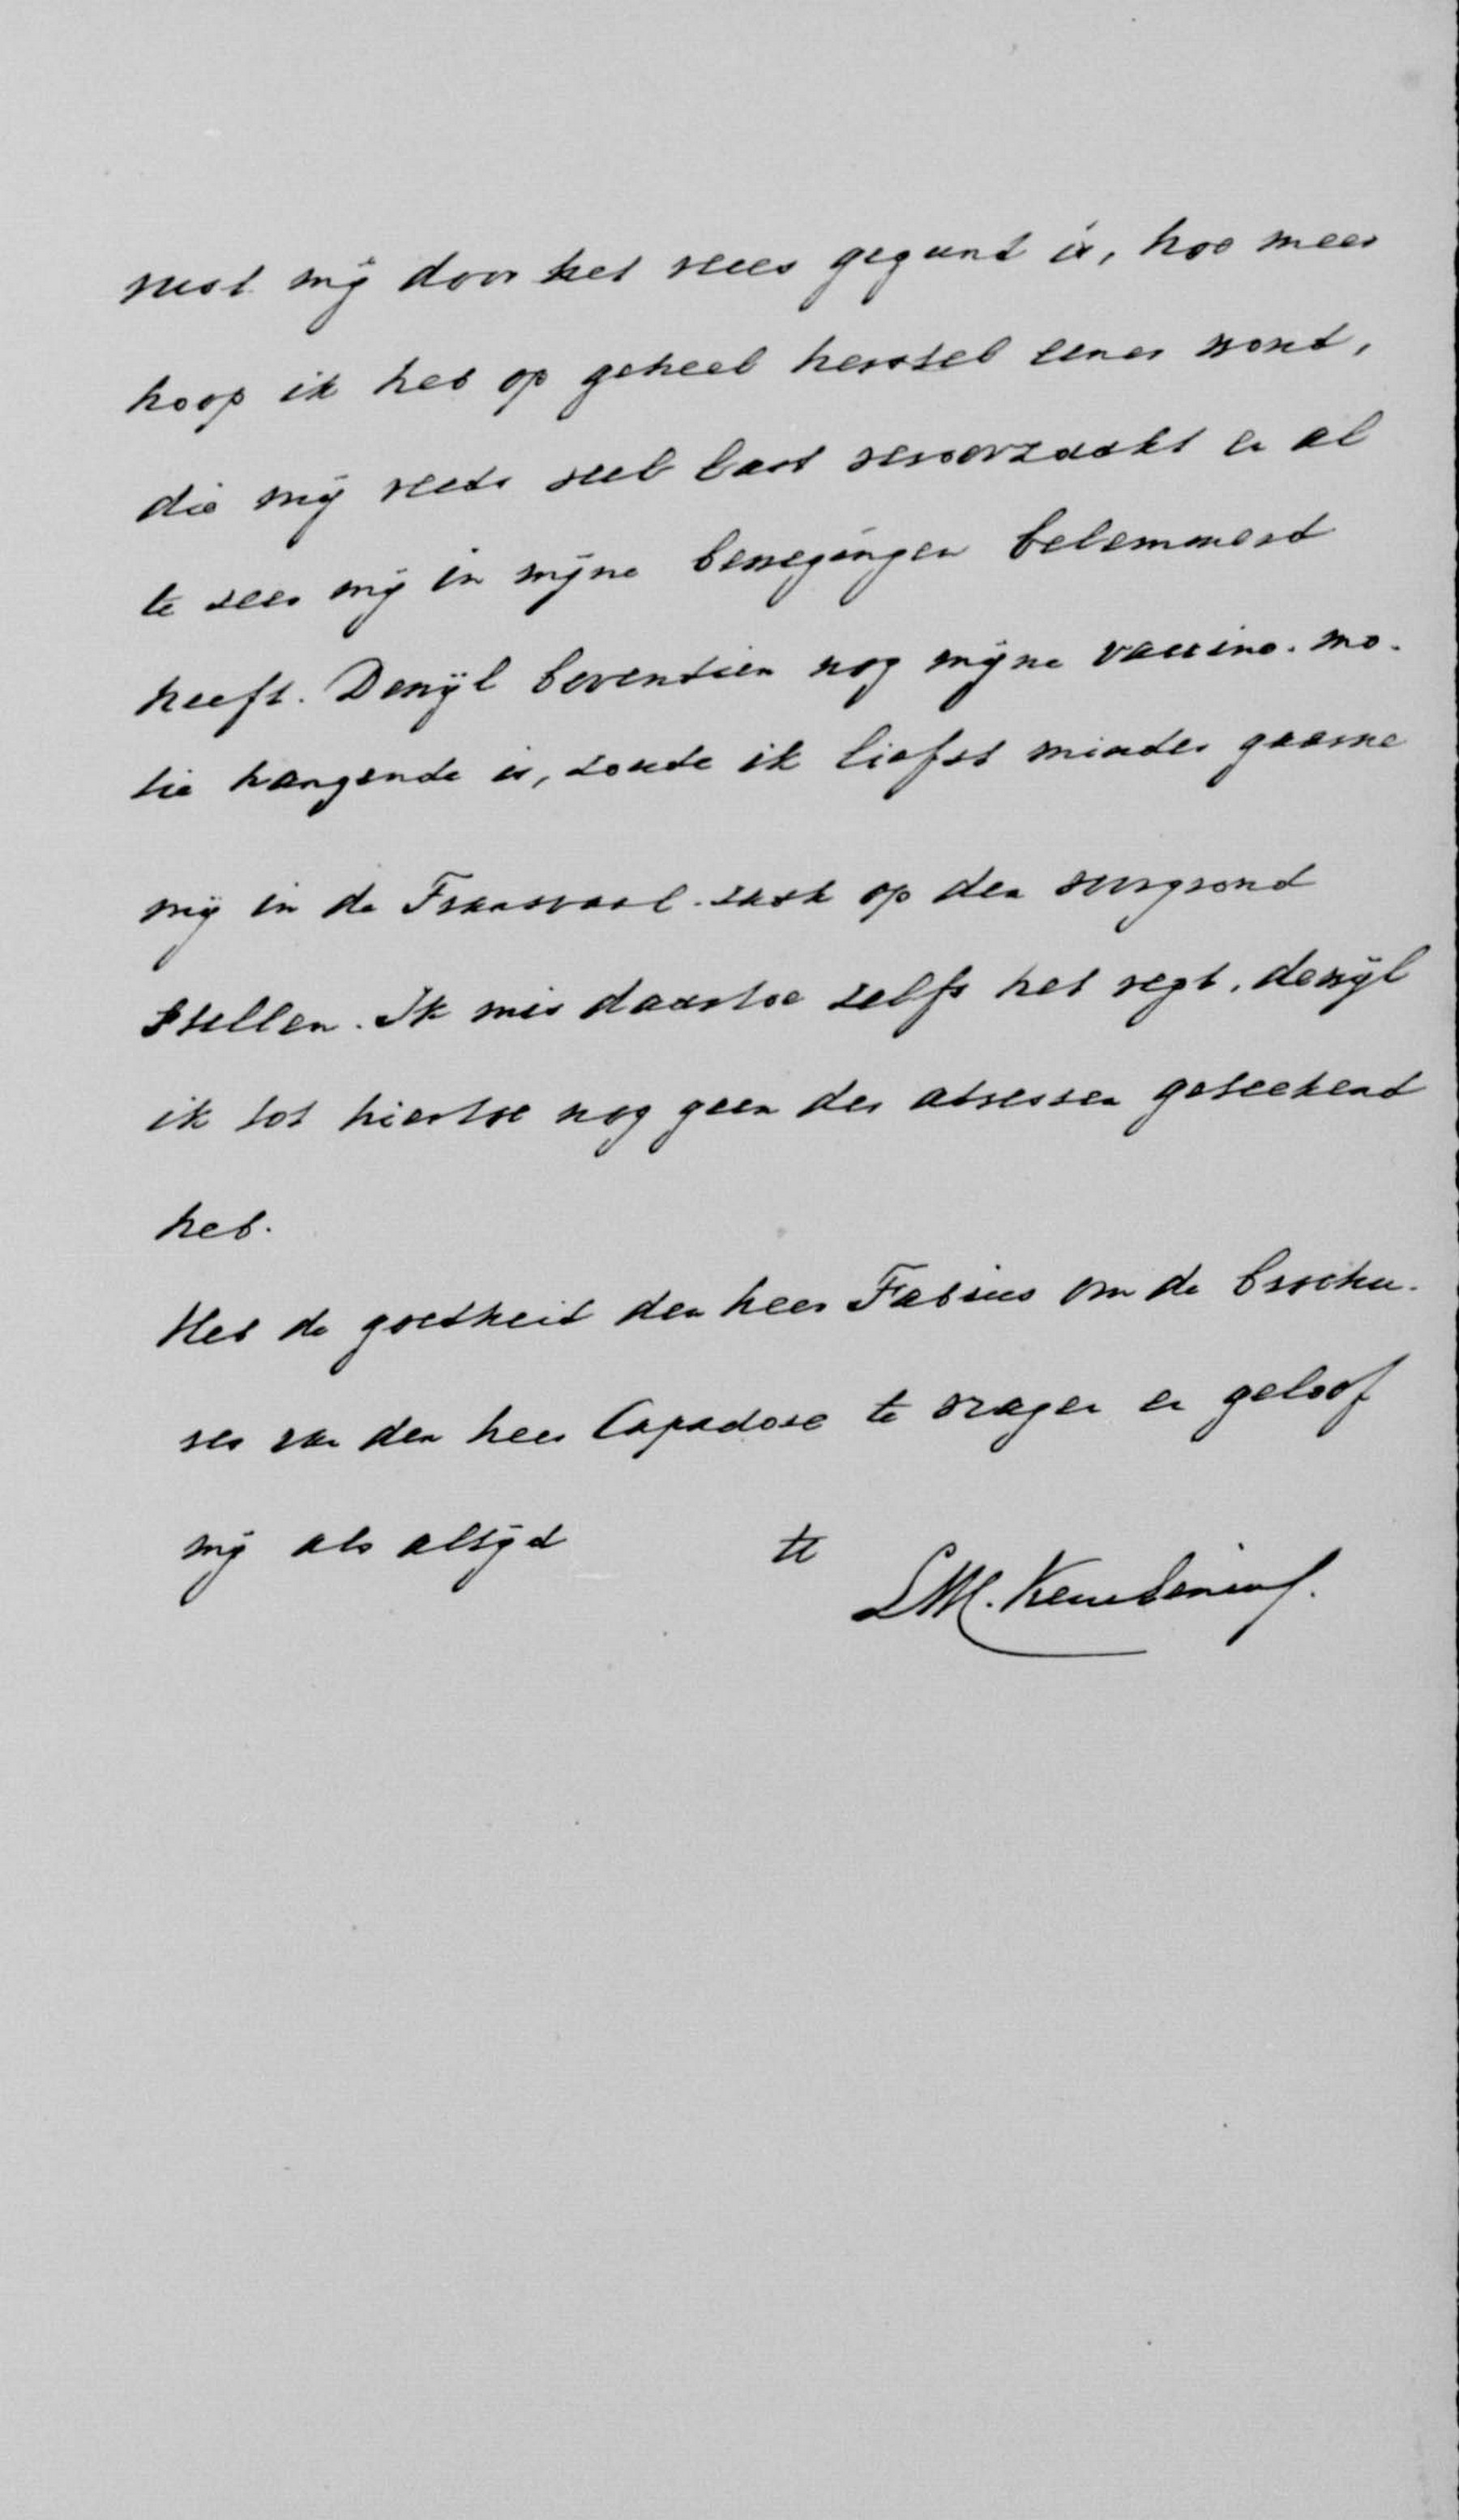 rust mij door het weer gegund is, hoe meer
hoop ik heb op geheel herstel eener wond,
die mij reeds veel last veroorzaakt en al
te zeer mij in mijne bewegingen belemmerd
heeft. Dewijl bovendien nog mijne vaccine-mo-
tie hangende is, zoude ik liefst minder gaarne
mij in de Transvaal-zaak op den voorgrond
stellen. Ik mis daartoe zelfs het regt, dewijl
ik tot hiertoe nog geen der adressen geteekend
heb.
Heb de goedheid den heer Fabius om de brochu-
res van den heer Capadose te vragen en geloof
mij als altijd tt
LWC. Keuchenius.